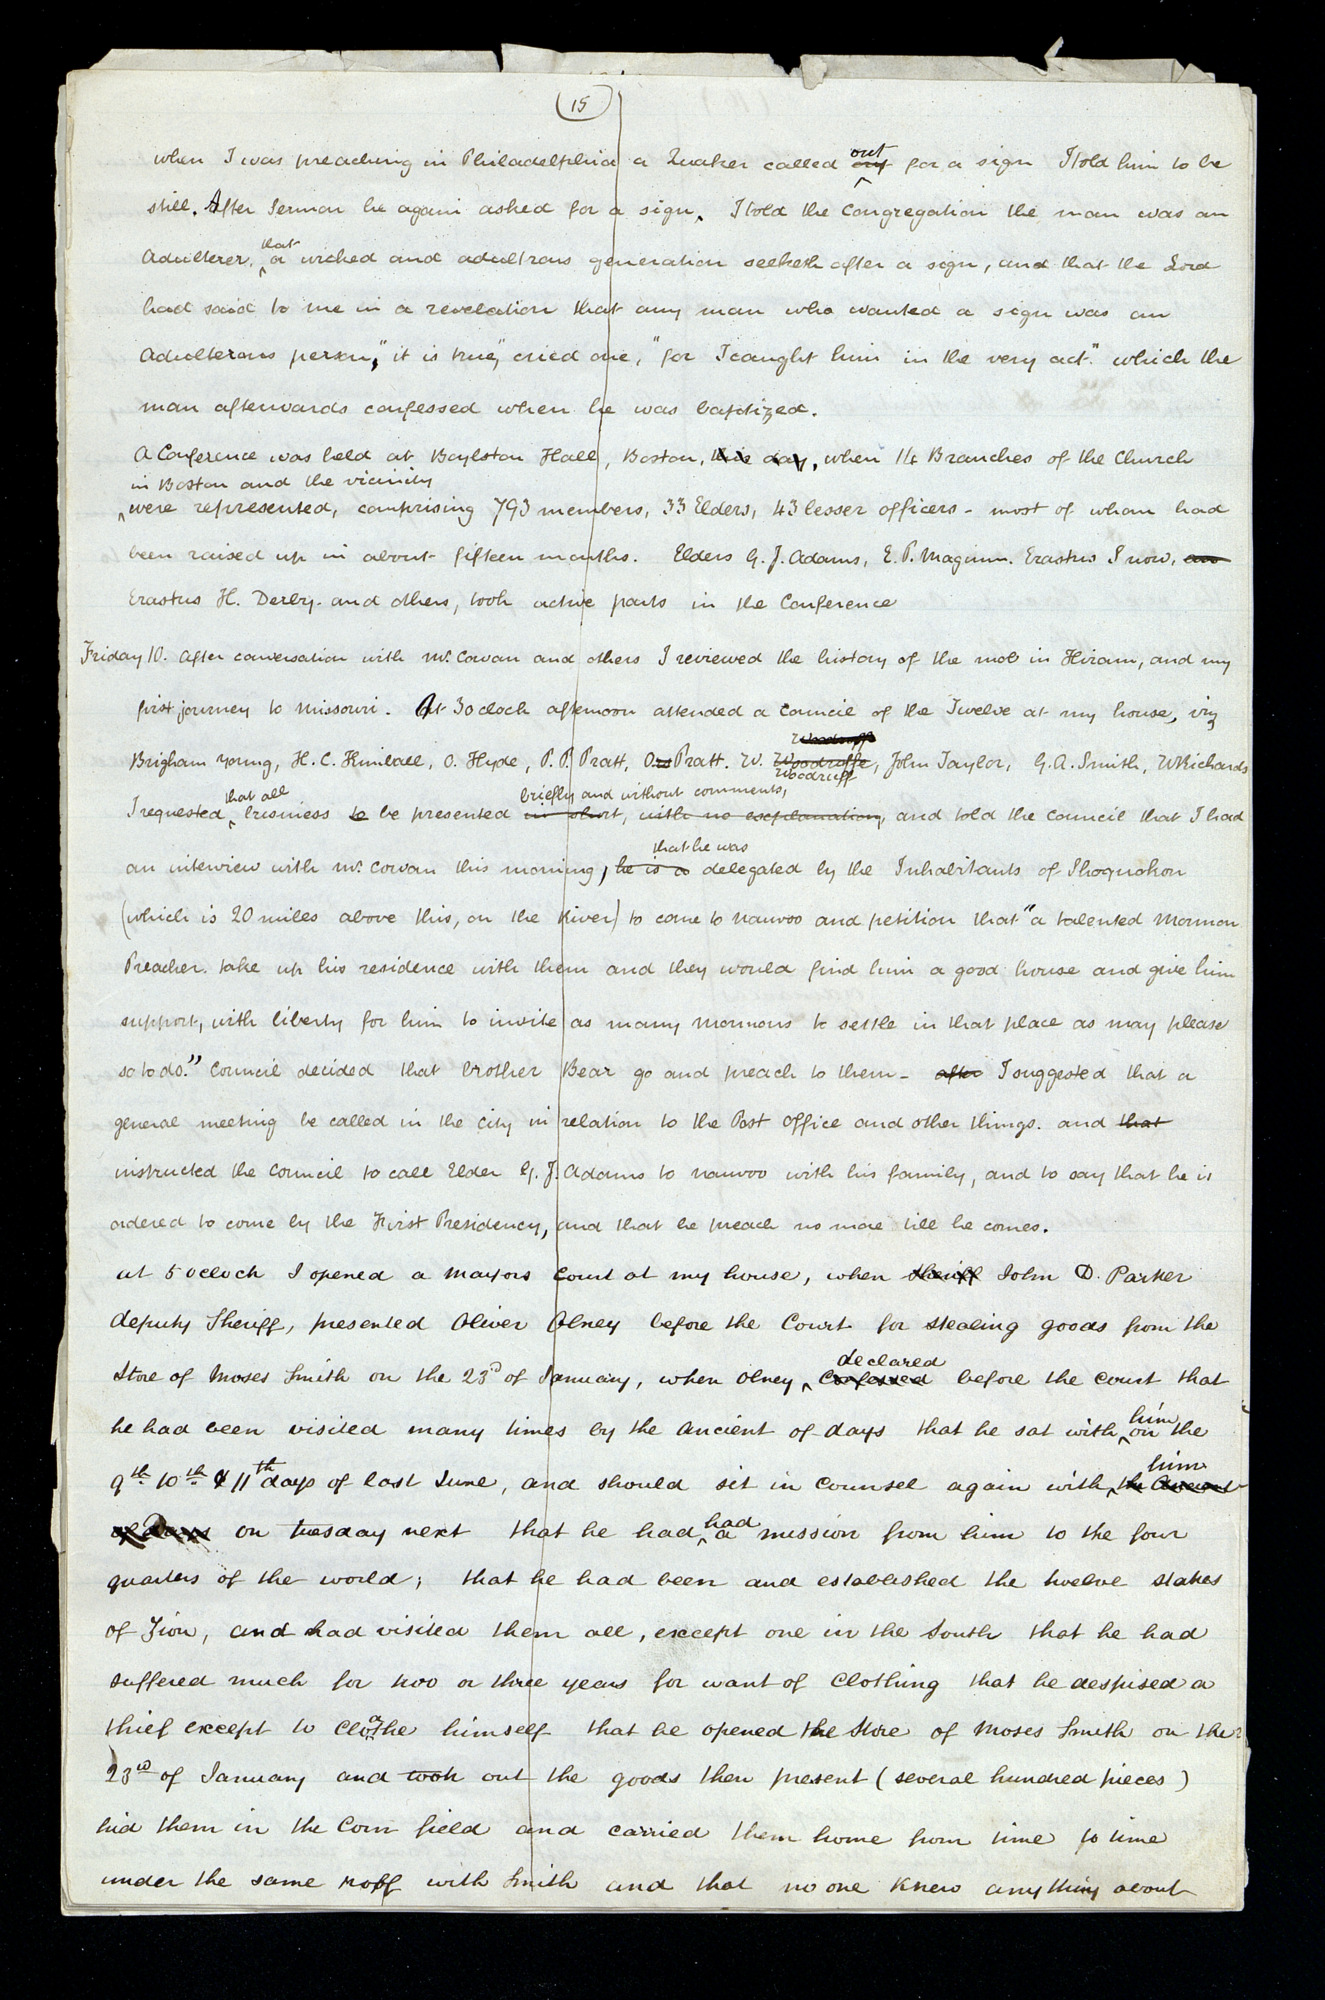 15
when I was preaching in Philadelphia a Quaker called out for a sign I told him to be
still. After Sermon he again asked for a sign, I told the congregation the man was an
Adulterer, that a wicked and adultrous generation seeketh after a sign, and that the Lord
had said to me in a revelation that any man who wanted a sign was an
Adulterous person, "it is true," cried one, "for I caught him in the very act." which the
man afterwards confessed when he was baptized.
A Conference was held at Boylston Hall, Boston, this day, when 14 Branches of the Church
in Boston and the vicinity
were represented, comprising 793 members, 33 Elders, 43 lesser officers - most of whom had
been raised up in about fifteen months. Elders G. J. Adams, E. P. Maginn. Erastus Snow, an
Erastus H. Derby. and others, took active parts in the Conference
Friday 10. After conversation with Mr. Cowan and others I reviewed the history of the mob in Hiram, and my
first journey to Missouri. At 3 oclock afternoon attended a Council of the Twelve at my house, viz
Woodruff
Brigham Young, H. C. Kimball, O. Hyde, P. P. Pratt, Ors Pratt. W. Woodruffe, John Taylor, G. A. Smith, W Richards
Woodruff
that all briefly and without comments,
I requested business to be presented in short, with no explanation, and told the council that I had
that he was
an interview with Mr. Cowan this morning, he is a delegated by the Inhabitants of Shoquokon
(which is 20 miles above this, on the River) to come to Nauvoo and petition that "a talented Mormon
Preacher. take up his residence with them and they would find him a good house and give him
support, with liberty for him to invite as many Mormons to settle in that place as may please
so to do." Council decided that brother Bear go and preach to them - after I suggested that a
general meeting be called in the City in relation to the Post Office and other things. and that
instructed the Council to call Elder G. J. Adams to Nauvoo with his family, and to say that he is
ordered to come by the First Presidency, and that he preach no more till he comes.
at 5 oclock I opened a Mayors Court at my house, when sheriff John D. Parker
deputy Sheriff, presented Oliver Olney before the Court for stealing goods from the
declared
Store of Moses Smith on the 23d of January, when Olney, Confessed before the court that
him
he had been visited many times by the Ancient of days that he sat with on the
him
9th. 10th & 11th days of last June, and should sit in counsel again with the Ancient
of Days on tuesday next that he had had a mission from him to the four
quarters of the world; that he had been and established the twelve stakes
of Zion, and had visited them all, except one in the South that he had
suffered much for two or three years for want of clothing that he despised a
thief except to clothe himself that he opened the Store of Moses Smith on the
23rd of January and took out the goods then present (several hundred pieces)
hid them in the Corn field and carried them home from time to time
under the same roof with Smith and that no one knew anything about